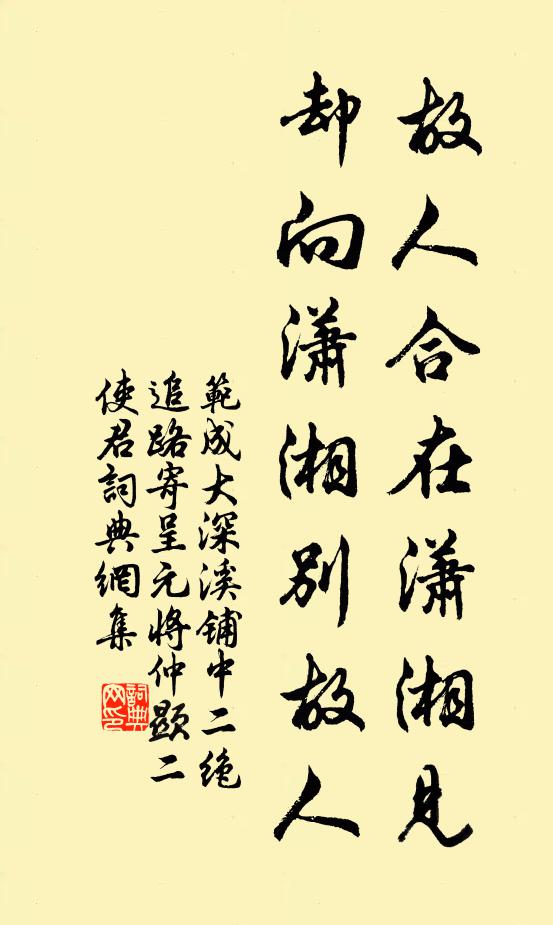 故人合在瀟湘見
却向瀟湘別故人
範成大深溪鋪中二絶
追路寄呈元將仲顯二
使君詞典網集
詞典
网印